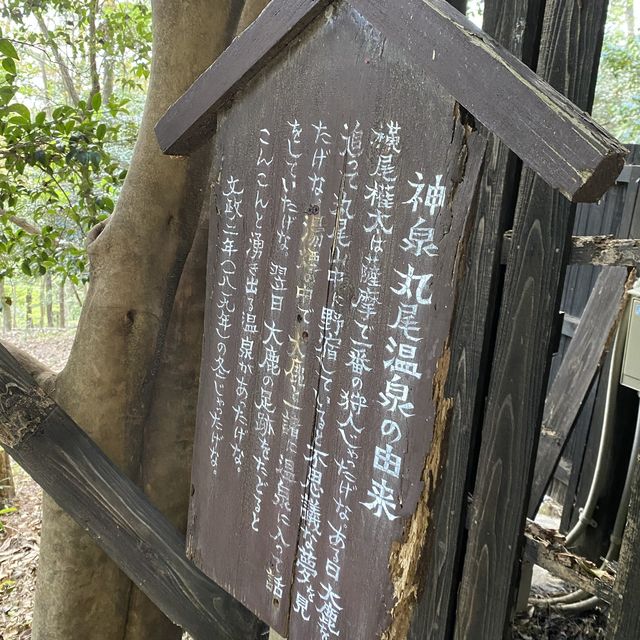 神泉丸尾温泉の由来
横尾権太は薩摩で一番の狩人じゃったげな。ある日大鹿を
追って丸尾山中に野宿していて、不思議な夢を見
たげな。湯煙の中で大鹿と一諸に温泉に入る話
をしていたげな。翌日大鹿の足跡をたどると
こんこんと湧き出る温泉があったげな。
文政二年(一八一九年)の冬じゃったげな。